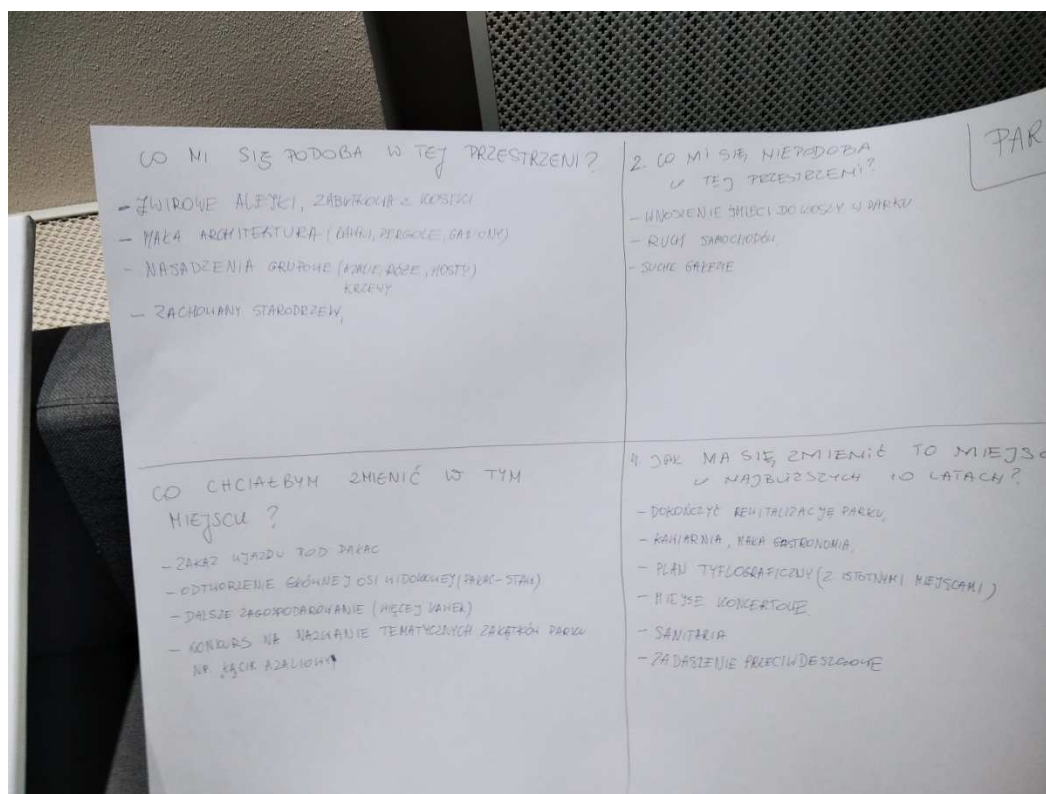 CO MI SIĘ PODOBA W TEJ PRZESTRZENI?
- ŻWIROWE ALEJKI, ZABYTKOWA KOSTKI
- MAŁA ARCHITEKTURA (ŁAWKI, PERGOLE, GAZONY)
- NASADZENIA GRUPOWE (AZALIE, RÓŻE, HOSTY)
KRZEWY
- ZACHOWANY STARODRZEW,
2. CO MI SIĘ NIEPODOBA
W TEJ PRZESTRZENI?
- WNOSZENIE ŚMIECI DO KOSZY W PARKU
- RUCH SAMOCHODÓW,
- SUCHE GAŁĘZIE
PAR
CO CHCIAŁBYM ZMIENIĆ W TYM
MIEJSCU?
- ZAKAZ WJAZDU POD PAŁAC
- ODTWORZENIE GŁÓWNEJ OSI WIDOKOWEJ (PAŁAC-STAW)
- DALSZE ZAGOSPODAROWANIE (WIĘCEJ ŁAWEK)
- KONKURS NA NAZWANIE TEMATYCZNYCH ZAKĄTKÓW PARKU
NP. KĄCIK AZALIOWY
4. JAK MA SIĘ ZMIENIĆ TO MIEJSC
W NAJBLIŻSZYCH 10 LATACH?
- DOKOŃCZYĆ REWITALIZACJĘ PARKU,
- KAWIARNIA, MAŁA GASTRONOMIA,
- PLAN TYFLOGRAFICZNY (Z ISTOTNYMI MIEJSCAMI)
- MIEJSE KONCERTOWE
- SANITARIA
- ZADASZENIE PRZECIWDESZCZOWE